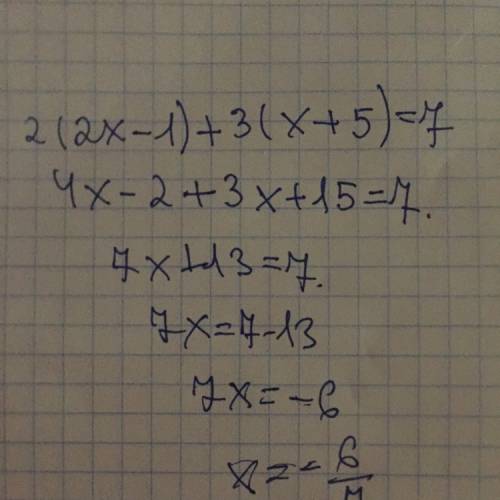 2(2x-1)+3(x+5)=7
4x-2+3x+15=7.
7x+13=7.
7x=7-13
7x=-6
x=-6/7